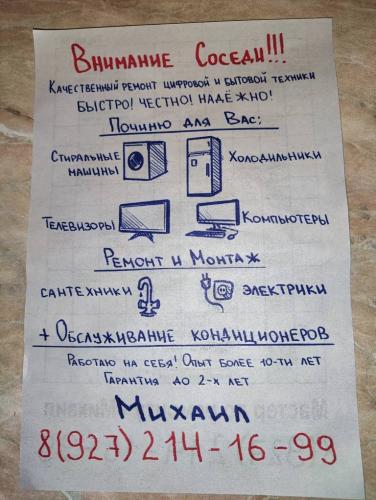 Внимание Соседи!!!
Качественный ремонт цифровой и бытовой техники
Быстро! Честно! Надёжно!
Починю для Вас:
Стиральные машины
Холодильники
Телевизоры
Компьютеры
Ремонт и Монтаж
сантехники
электрики
+ Обслуживание кондиционеров
Работаю на себя! Опыт более 10-ти лет
Гарантия до 2-х лет
Михаил
8(927)214-16-99